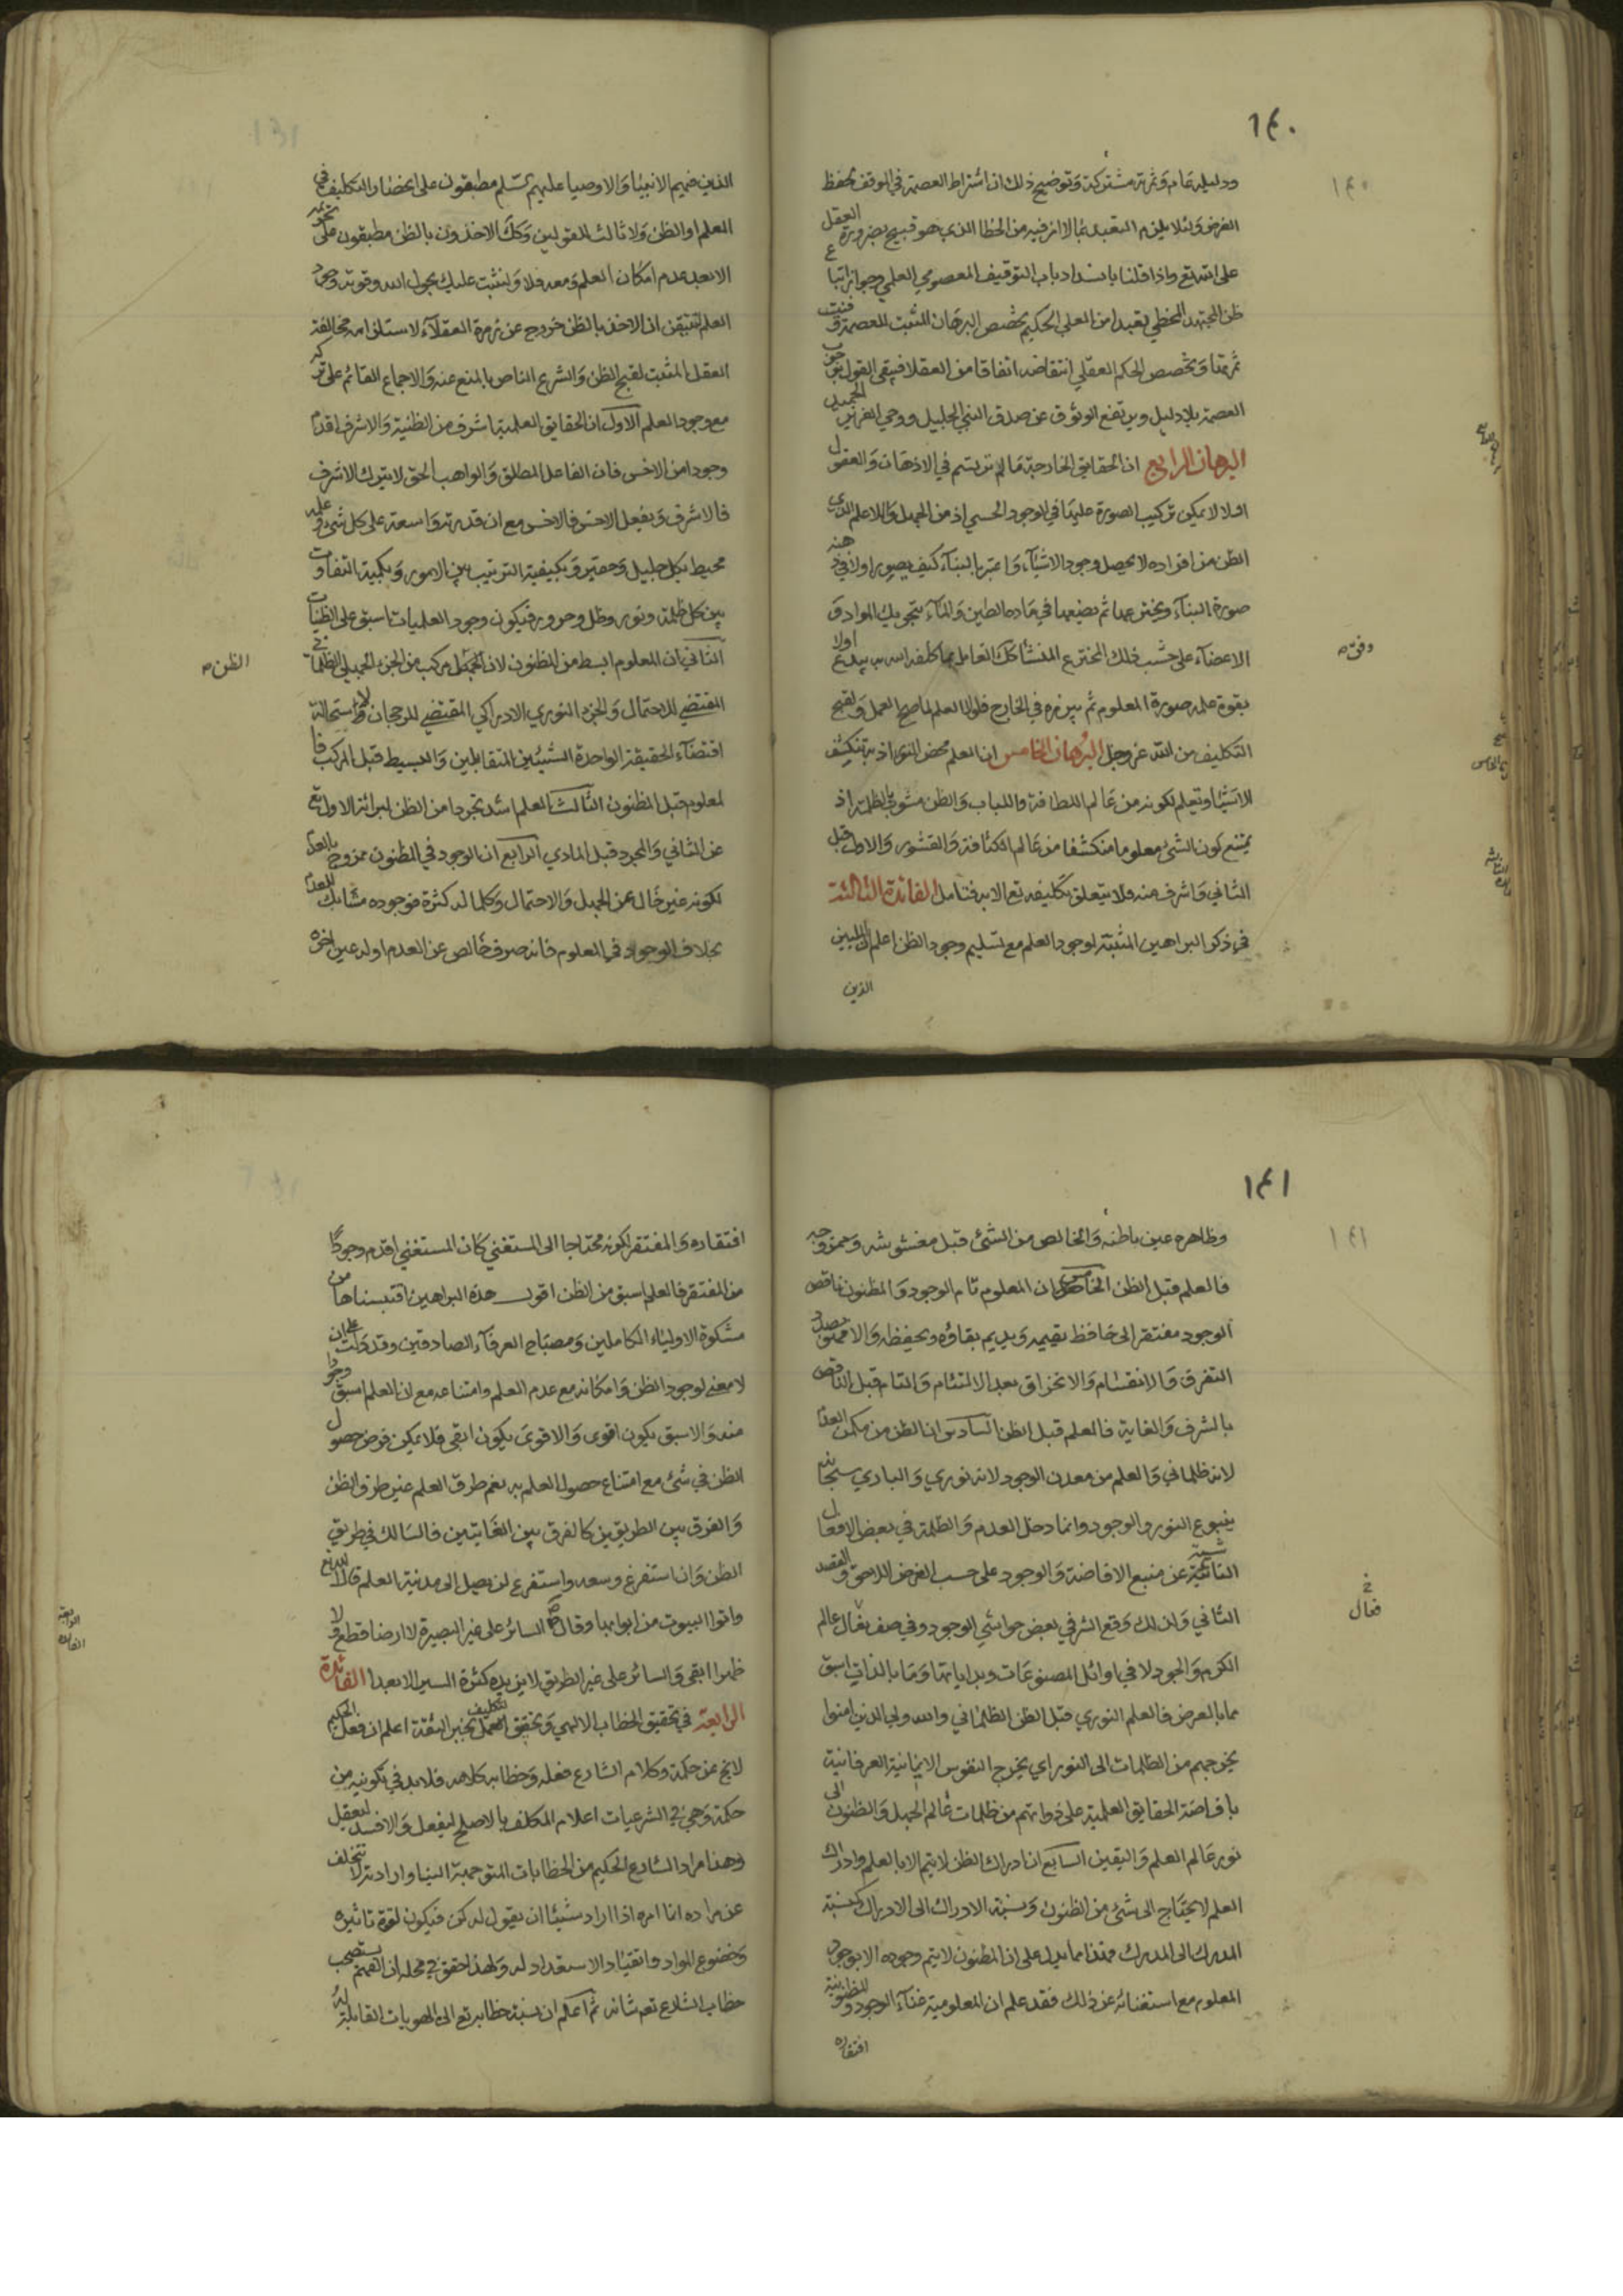 ١٤٠
ودليله عام وثمرته مشتركة وتوضيح ذلك ان اشتراط العصمة في الموقف لحفظ
الغرض ولئلا يلزم التعبد بما لا امن فيه من الخطا الذي هو قبيح بضرورة العقل
على الله تع واذا قلنا بانسداد باب التوقيف المعصومي العلمي وجواز اتباع
ظن المجتهد المخطي تعبدا من العلي الحكيم تخصص البرهان المثبت للعصمة وفتت
ثمرتها وتخصص الحكم العقلي انتقاضه اتفاقا من العقلا فيبقى القول بوجوب
العصمة بلا دليل ويرتفع الوثوق عن صدق النبي الجليل ووحي العزيز الجميل
البرهان الرابع ان الحقايق الخارجية ما لم ترتسم في الاذهان والعقول
اولا لا يمكن تركيب الصورة عليها في الوجود الحسي اذ من الجهل واللاعلم الذي
الظن من افراده لا يحصل وجود الاشيآء واعتبر بالبنآء كيف يصور اولا في ذهنه
صورة البنآء ويخترعها ثم يضعها في ماده الطين والمآء بتحريك المواد و
الاعضآء على حسب ذلك المخترع المنشا كك العامل بما كلفه الله به يبدع اولا
بقوة علمه صورة المعلوم ثم يبرزه في الخارج فلولا العلم لما صح العمل ولقبح
التكليف من الله عز وجل البرهان الخامس ان العلم محض النور اذ به تنكشف
الاشيا وتعلم لكونه من عالم اللطافة واللباب والظن مشوب بالظلمة اذ
يمتنع كون الشئ معلوما منكشفا من عالم الكثافة والقشور والاول قبل
الثاني واشرف منه فلا يتعلق تكليفه تع الا به فتامل الفائدة الثالثة
في ذكر البراهين المثبتة لوجود العلم مع تسليم وجود الظن اعلم ان المليين
الذين
وفق ص
الذين فيهم الانبيا والاوصيا عليهم السلم مطبقون على انحصار التكليف في
العلم او الظن ولا ثالث للقولين وكك الاخذون بالظن مطبقون على تحريمه
الا بعد عدم امكان العلم ومعه فلا ولنثبت عليك بحول الله وقوته وجود
العلم لتتيقن ان الاخذ بالظن خروج عن زمرة العقلآء لاستلزامه مخالفة
العقل المثبت لقبح الظن والشرع الناص بالمنع عنه والاجماع القائم على تركه
مع وجود العلم الاول ان الحقايق العلمية اشرف من الظنية والاشرف اقدم
وجودا من الاخس فان الفاعل المطلق والواهب الحق لا يترك الاشرف
فالاشرف ويفعل الاخس فالاخس مع ان قدرته واسعة على كل شئ وعلمه
محيط بكل جليل وحقير وبكيفية الترتيب بين الامور وبكمية التفاوت
بين كل ظلمة ونور وظل وحرور فيكون وجود العلميات اسبق على الظنيات
الثاني ان المعلوم ابسط من المظنون لان مركب من الجزء الجهلي الظلماني
المقتضي للاحتمال والجزء النوري الادراكي المقتضي للرجحان لاستحالة
اقتضآء الحقيقة الواحدة الشيئين المتقابلين والبسيط قبل المركب فا
لمعلوم قبل المظنون الثالث العلم اشد تجردا من الظن لبرائة الاول تع
عن الثاني والمجرد قبل المادي الرابع ان الوجود في المظنون ممزوج بالعدم
لكونه غير خال عن الجهل والاحتمال وكلما له كثرة فوجوده مشابك للعدم
بخلاف الوجود في المعلوم فانه صرف خالص عن العدم اوله عين اخره
الظن ص
١٤١
وظاهره عين باطنه والخالص من الشئ قبل مغشوشه وممزوجه
فالعلم قبل الظن الخامس ان المعلوم تام الوجود والمظنون ناقص
الوجود مفتقر الى حافظ يقيمه ويديم بقاؤه ويحفظه والا
التفرق والانقسام والانخراق بعد الالتئام والتام قبل الناقص
بالشرف والغاية فالعلم قبل الظن السادس ان الظن من مكمن العدم
لانه ظلماني والعلم من معدن الوجود لانه نوري والباري سبحانه
ينبوع النور والوجود وانما دخل العدم والظلمة في بعض الافعال
الناشية عن منبع الافاضة والوجود على حسب الغرض اللاحق والقصد
الثاني ولذلك وقع الشر في بعض حواشي الوجود وفي صف نعال عالم
الكرم والجود لا في اوائل المصنوعات وبداياتها وما بالذات اسبق
مما بالعرض فالعلم النوري قبل الظن الظلماني والله ولي الذين امنوا
يخرجهم من الظلمات الى النور اي يخرج النفوس الايمانية العرفانية
بافاضة الحقايق العلمية على ذواتهم من ظلمات عالم الجهل والظنون الى
نور عالم العلم واليقين السابع ان ادراك الظن لا يتم الا بالعلم وادراك
العلم لا يحتاج الى شئ من الظنون ونسبة الادراك الى الادراك كنسبة
المدرك الى المدرك فهذا مما يدل على ان المظنون لا يتم وجوده الا بوجود
المعلوم مع استغنائه عن ذلك فقد علم ان المعلومية غنآء الوجود والمظنونية
افتقاره
افتقاره والمفتقر لكونه محتاجا الى المستغني كان المستغني اقدم وجودا
من المفتقر فالعلم اسبق من الظن اقول هذه البراهين اقتبسناها من
مشكوة الاولياء الكاملين ومصباح العرفآء الصادقين وقد دلت على ان
لا معنى لوجود الظن وامكانه مع عدم العلم وامتناعه مع ان العلم اسبق وجودا
منه والاسبق يكون اقوى والاقوى يكون ابقى فلا يمكن فرض حصول
الظن في شئ مع امتناع حصول العلم به نعم طرق العلم غير طرق الظن
والفرق بين الطريقين كالفرق بين الغايتين فالسالك في طريق
الظن وان استفرغ وسعه واستفرغ لن يصل الى مدنية العلم قال الله تع
واتوا البيوت من ابوابها وقال ص السائر على غير البصيرة لا ارضا قطع ولا
ظهرا ابقى والسائر على غير الطريق لا يزيده كثرة السير الا بعدا الفائدة
الرابعة في تحقيق الخطاب الالهي وتحقق التكليف بخبر الثقة اعلم ان فعل الحكيم
لا يخ عن حكمة وكلام الشارع فعله وخطابه كلامه فلا بد في تكوينه من
حكمة وهي في الشرعيات اعلام المكلف بالاصلح ليفعل والافسد
وهذا مراد الشارع الحكيم من الخطابات المتوجهة الينا وارادته لا تتخلف
عن مراده انما امره اذا اراد شيئا ان يقول له كن فيكون لقوة تاثيره
وخضوع المواد وانقياد الاستعداد له ولهذا حقق في محله ان الفهم يستصحب
خطاب الشارع تعم شانه ثم اعلم ان نسبة خطابه تع الى الهويات القابلة له